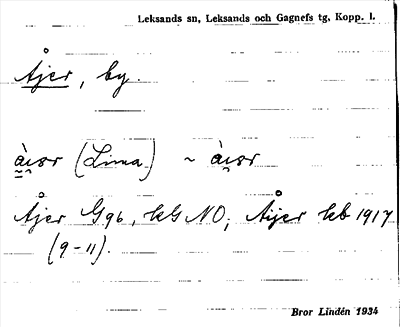 Leksands sn, Leksands och Gagnefs tg, Kopp. l.
Åjer, by.
(Lima) ~
Åjer G96, kG NO; Åijer kb 1917
(9-11).
Bror Lindén 1934